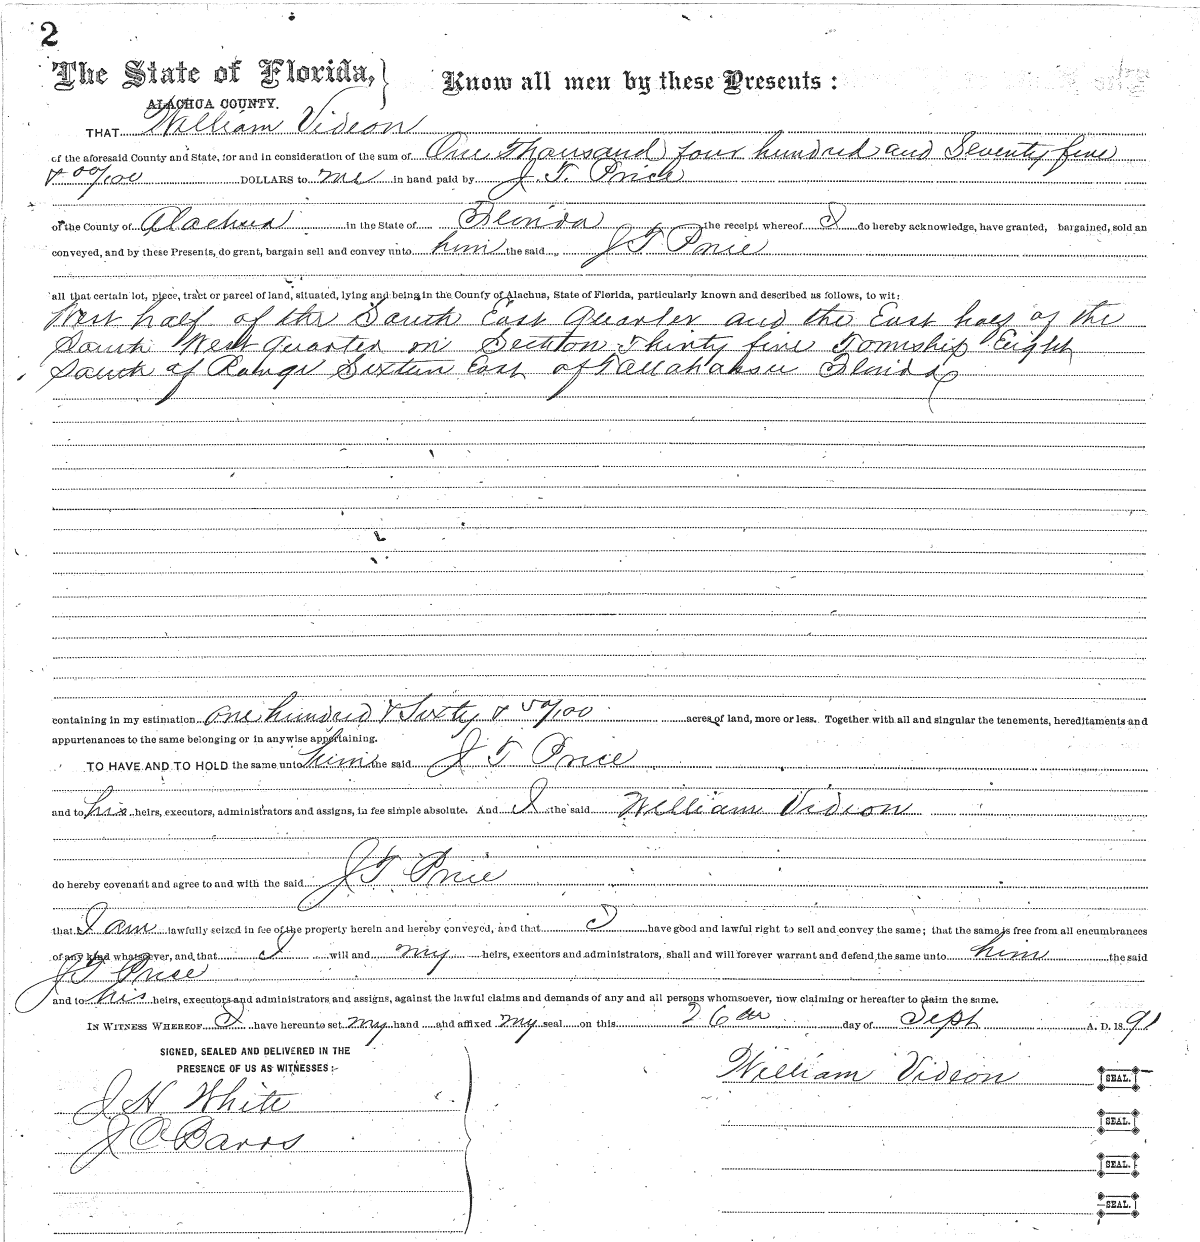 2
The State of Florida,
ALACHUA COUNTY.
Know all men by these Presents :
THAT William Videon
of the aforesaid County and State, for and in consideration of the sum of One Thousand four hundred and Seventy five
& 00/100 DOLLARS to me in hand paid by J. T. Price
of the County of Alachua in the State of Florida the receipt whereof I do hereby acknowledge, have granted, bargained, sold an
conveyed, and by these Presents, do grant, bargain sell and convey unto him the said J T Price
all that certain lot, piece, tract or parcel of land, situated, lying and being in the County of Alachua, State of Florida, particularly known and described as follows, to wit:
West half of the South East quarter and the East half of the
South West quarter on Section Thirty five Township Eight
South of Range Sixteen East of Tallahassee Florida
containing in my estimation one hundred & Sixty & 50/100 acres of land, more or less. Together with all and singular the tenements, hereditaments and
appurtenances to the same belonging or in anywise appertaining.
TO HAVE AND TO HOLD the same unto him the said J T Price
and to his heirs, executors, administrators and assigns, in fee simple absolute. And I the said William Videon
do hereby covenant and agree to and with the said J T Price
that I am lawfully seized in fee of the property herein and hereby conveyed, and that I have good and lawful right to sell and convey the same; that the same is free from all encumbrances
of any kind whatsoever, and that I will and my heirs, executors and administrators, shall and will forever warrant and defend the same unto him the said
J T Price
and to his heirs, executors and administrators and assigns, against the lawful claims and demands of any and all persons whomsoever, now claiming or hereafter to claim the same.
IN WITNESS WHEREOF I have hereunto set my hand and affixed my seal on this 26th day of Sept A. D. 1891
SIGNED, SEALED AND DELIVERED IN THE
PRESENCE OF US AS WITNESSES:-
J H White
J C Barrs
William Videon SEAL.
SEAL.
SEAL.
SEAL.